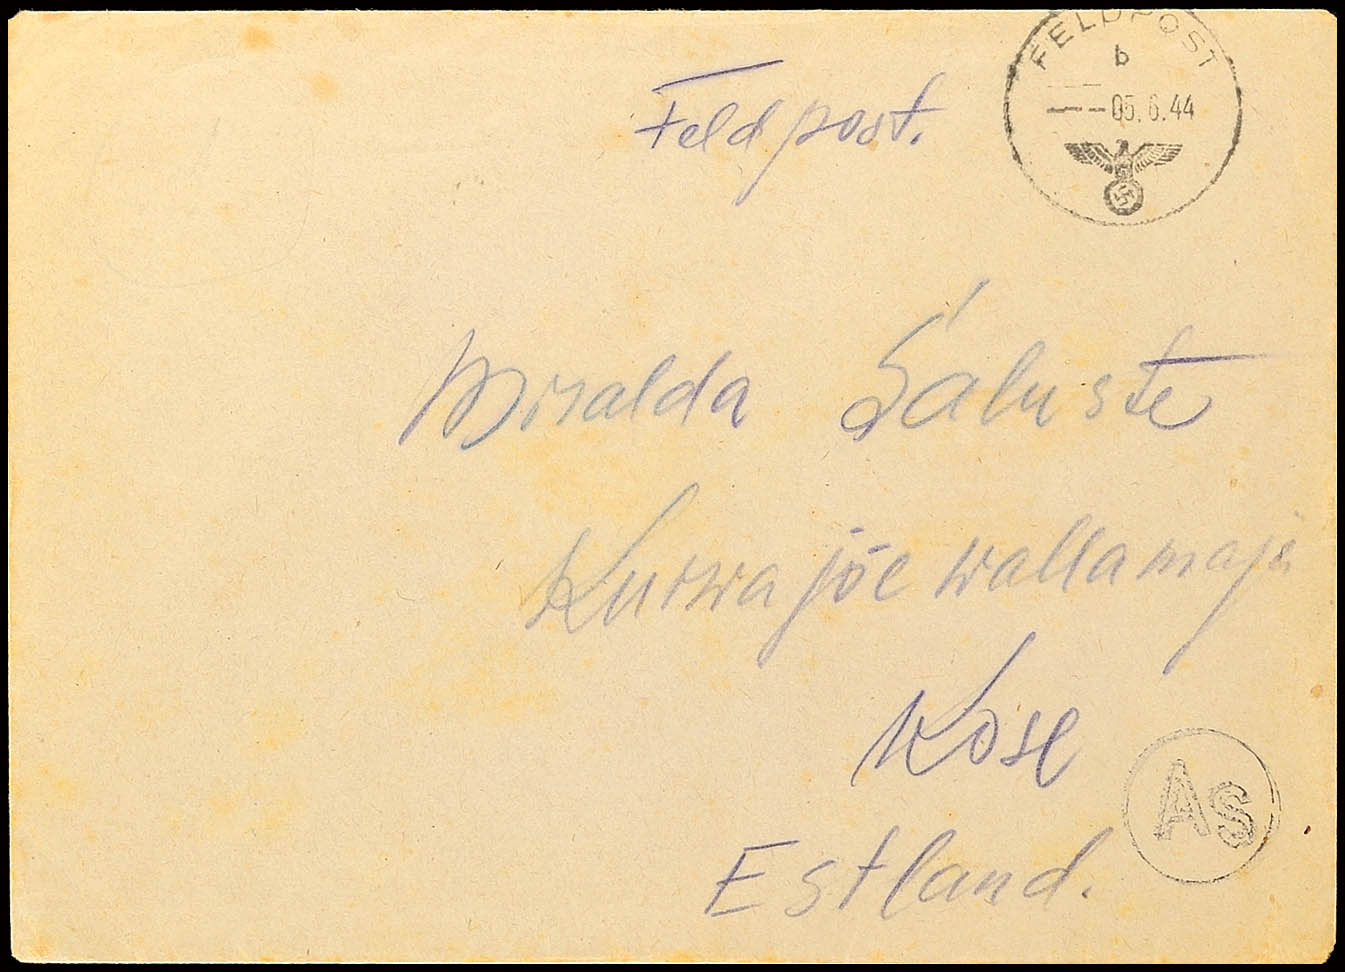 FELDPOST
b
05.6.44
Feldpost.
Miralda Saluste
Kurwajõe wallamaja
Kose
Estland.
As